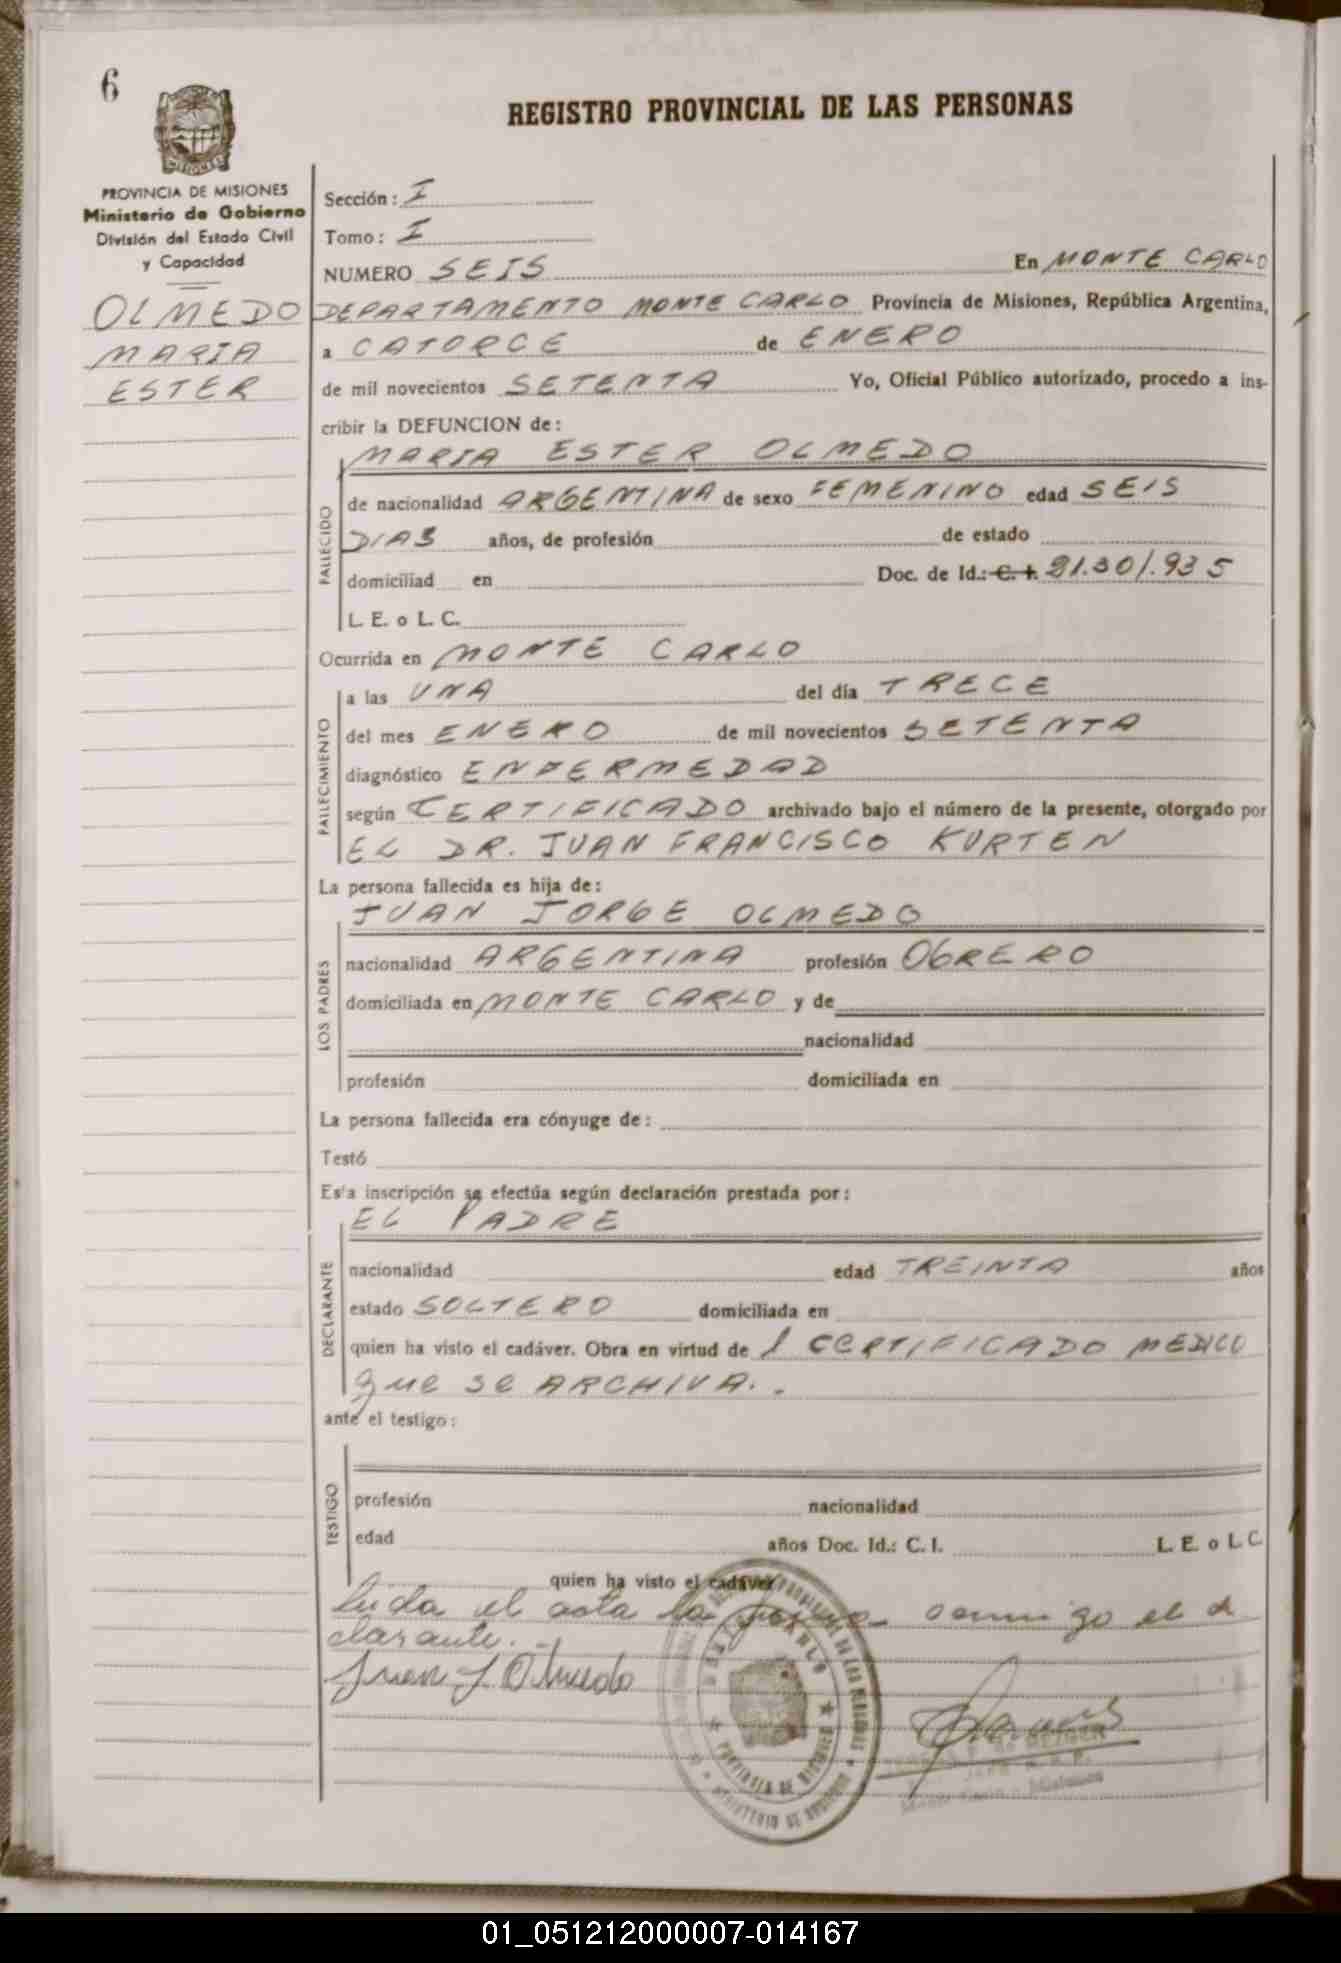 6
REGISTRO PROVINCIAL DE LAS PERSONAS
MISIONES
PROVINCIA DE MISIONES
Ministerio de Gobierno
División del Estado Civil
y Capacidad
OLMEDO
MARIA
ESTER
Sección: I
Tomo: I
NUMERO SEIS En MONTE CARLO
DEPARTAMENTO MONTE CARLO Provincia de Misiones, República Argentina,
a CATORCE de ENERO
de mil novecientos SETENTA Yo, Oficial Público autorizado, procedo a ins-
cribir la DEFUNCION de:
MARIA ESTER OLMEDO
FALLECIDO
de nacionalidad ARGENTINA de sexo FEMENINO edad SEIS
DIAS años, de profesión de estado
domiciliad en Doc. de Id.: C. I. 21.301.935
L. E. o L. C.
Ocurrida en MONTE CARLO
FALLECIMIENTO
a las UNA del día TRECE
del mes ENERO de mil novecientos SETENTA
diagnóstico ENFERMEDAD
según CERTIFICADO archivado bajo el número de la presente, otorgado por
EL DR. JUAN FRANCISCO KURTEN
La persona fallecida es hija de:
JUAN JORGE OLMEDO
LOS PADRES
nacionalidad ARGENTINA profesión OBRERO
domiciliada en MONTE CARLO y de
nacionalidad
profesión domiciliada en
La persona fallecida era cónyuge de:
Testó
Esta inscripción se efectúa según declaración prestada por:
EL PADRE
DECLARANTE
nacionalidad edad TREINTA años
estado SOLTERO domiciliada en
quien ha visto el cadáver. Obra en virtud de l CERTIFICADO MEDICO
que se ARCHIVA..
ante el testigo:
TESTIGO
profesión nacionalidad
edad años Doc. Id.: C. I. L. E. o L C
quien ha visto el cadáver
Leida el acta la conmigo el de
clarante.
Juan J. Olmedo
PROVINCIA DE MISIONES
MINISTERIO DE GOBIERNO
Monte Carlo - Misiones
01_051212000007-014167